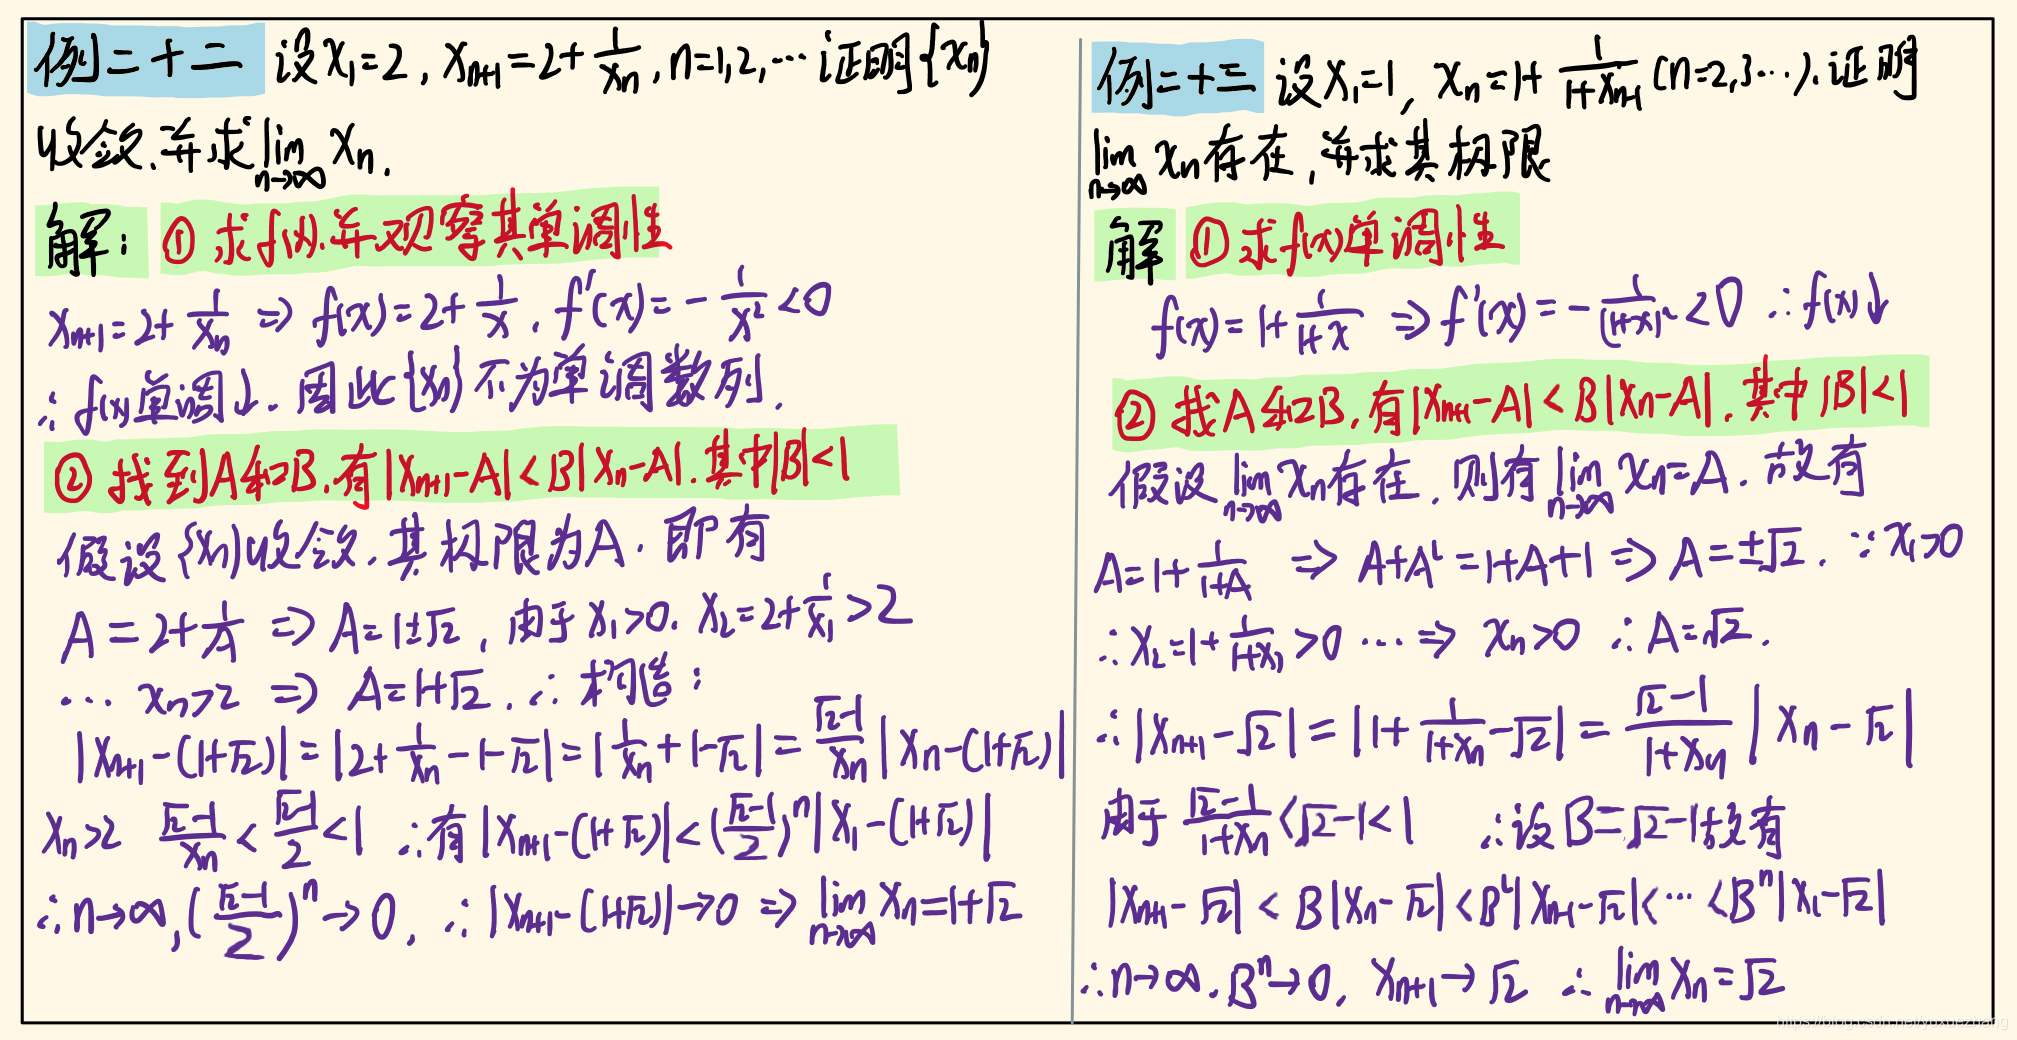 例二十二 设 x₁=2, xₙ₊₁=2+1/xₙ, n=1,2,… 证明{xₙ}
收敛.并求 lim(n→∞) xₙ.
解: ① 求f(x).并观察其单调性
xₙ₊₁=2+1/xₙ ⇒ f(x)=2+1/x, f'(x)=-1/x²<0
∴ f(x)单调↓. 因此{xₙ}不为单调数列.
② 找到A和B.有|xₙ₊₁-A|<B|xₙ-A|.其中|B|<1
假设{xₙ}收敛.其极限为A. 即有
A=2+1/A ⇒ A=1±√2, 由于x₁>0. x₂=2+1/x₁>2
… xₙ>2 ⇒ A=1+√2. ∴ 构造:
|xₙ₊₁-(1+√2)|=|2+1/xₙ-1-√2|=|1/xₙ+1-√2|=(√2-1)/xₙ|xₙ-(1+√2)|
xₙ>2 (√2-1)/xₙ<(√2-1)/2<1 ∴有|xₙ₊₁-(1+√2)|<((√2-1)/2)ⁿ|x₁-(1+√2)|
∴n→∞,((√2-1)/2)ⁿ→0, ∴|xₙ₊₁-(1+√2)|→0 ⇒ lim(n→∞) xₙ=1+√2
例二十三 设x₁=1, xₙ=1+1/(1+xₙ₋₁) (n=2,3…).证明
lim(n→∞) xₙ存在,并求其极限
解 ① 求f(x)单调性
f(x)=1+1/(1+x) ⇒ f'(x)=-1/(1+x)²<0 ∴f(x)↓
② 找A和B.有|xₙ₊₁-A|<B|xₙ-A|.其中|B|<1
假设 lim(n→∞) xₙ存在. 则有 lim(n→∞) xₙ=A. 故有
A=1+1/(1+A) ⇒ A+A²=1+A+1 ⇒ A=±√2. ∵x₁>0
∴x₂=1+1/(1+x₁)>0 … ⇒ xₙ>0 ∴A=√2.
∴|xₙ₊₁-√2|=|1+1/(1+xₙ)-√2|=(√2-1)/(1+xₙ)|xₙ-√2|
由于 (√2-1)/(1+xₙ)<√2-1<1 ∴设B=√2-1故有
|xₙ₊₁-√2|<B|xₙ-√2|<B²|xₙ₋₁-√2|<…<Bⁿ|x₁-√2|
∴n→∞.Bⁿ→0, xₙ₊₁→√2 ∴ lim(n→∞) xₙ=√2